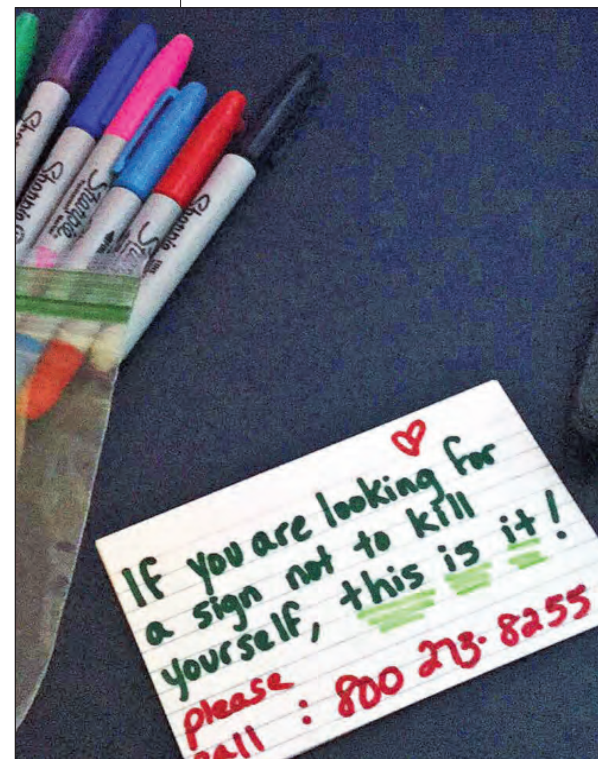 Sharpie
Sharpie
Sharpie
If you are looking for
a sign not to kill
yourself, this is it!
please
call : 800 273-8255